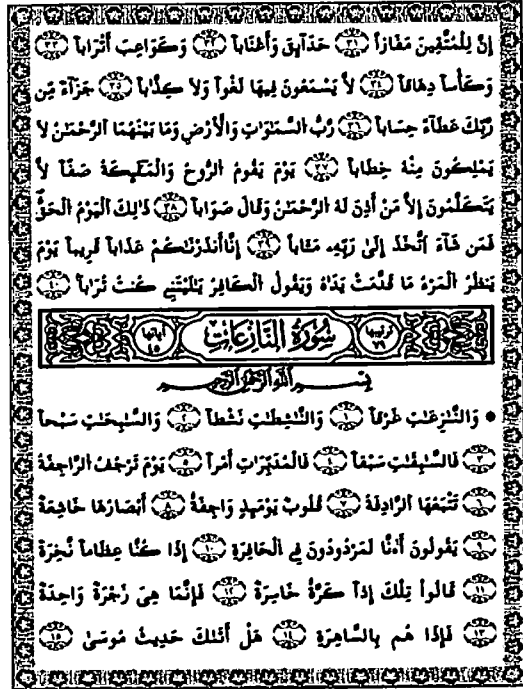 إِنَّ لِلْمُتَّقِينَ مَفَازاً ٣١ حَدَآئِقَ وَأَعْنَاباً ٣٢ وَكَوَاعِبَ أَتْرَاباً ٣٣
وَكَأْساً دِهَاقاً ٣٤ لاَّ يَسْمَعُونَ فِيهَا لَغْواً وَلاَ كِذَّٰباً ٣٥ جَزَآءً مِّن
رَّبِّكَ عَطَآءً حِسَاباً ٣٦ رَّبُّ السَّمَٰوَٰتِ وَالْأَرْضِ وَمَا بَيْنَهُمَا الرَّحْمَٰنُ لاَ
يَمْلِكُونَ مِنْهُ خِطَاباً ٣٧ يَوْمَ يَقُومُ الرُّوحُ وَالْمَلَٰٓئِكَةُ صَفّاً لاَّ
يَتَكَلَّمُونَ إِلاَّ مَنْ أَذِنَ لَهُ الرَّحْمَٰنُ وَقَالَ صَوَاباً ٣٨ ذَٰلِكَ الْيَوْمُ الْحَقُّ
فَمَن شَآءَ اتَّخَذَ إِلَىٰ رَبِّهِ مَـَٔاباً ٣٩ إِنَّآ أَنذَرْنَٰكُمْ عَذَاباً قَرِيباً يَوْمَ
يَنظُرُ الْمَرْءُ مَا قَدَّمَتْ يَدَاهُ وَيَقُولُ الْكَافِرُ يَٰلَيْتَنِي كُنتُ تُرَٰباً ٤٠
ترتيبها ٧٩ سُورَةُ النَّازِعَاتِ آياتها ٤٥
بِسْمِ اللَّهِ الرَّحْمَٰنِ الرَّحِيمِ
• وَالنَّٰزِعَٰتِ غَرْقاً ١ وَالنَّٰشِطَٰتِ نَشْطاً ٢ وَالسَّٰبِحَٰتِ سَبْحاً
٣ فَالسَّٰبِقَٰتِ سَبْقاً ٤ فَالْمُدَبِّرَٰتِ أَمْراً ٥ يَوْمَ تَرْجُفُ الرَّاجِفَةُ
٦ تَتْبَعُهَا الرَّادِفَةُ ٧ قُلُوبٌ يَوْمَئِذٍ وَاجِفَةٌ ٨ أَبْصَارُهَا خَاشِعَةٌ
٩ يَقُولُونَ أَءِنَّا لَمَرْدُودُونَ فِي الْحَافِرَةِ ١٠ إِذَا كُنَّا عِظَاماً نَّخِرَةً
١١ قَالُوا تِلْكَ إِذاً كَرَّةٌ خَاسِرَةٌ ١٢ فَإِنَّمَا هِىَ زَجْرَةٌ وَاحِدَةٌ
١٣ فَإِذَا هُم بِالسَّاهِرَةِ ١٤ هَلْ أَتَىٰكَ حَدِيثُ مُوسَىٰ ١٥